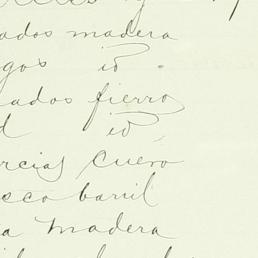 ados madera
gos id.
ados fierro
d id
rcias cuero
sco barril
a madera